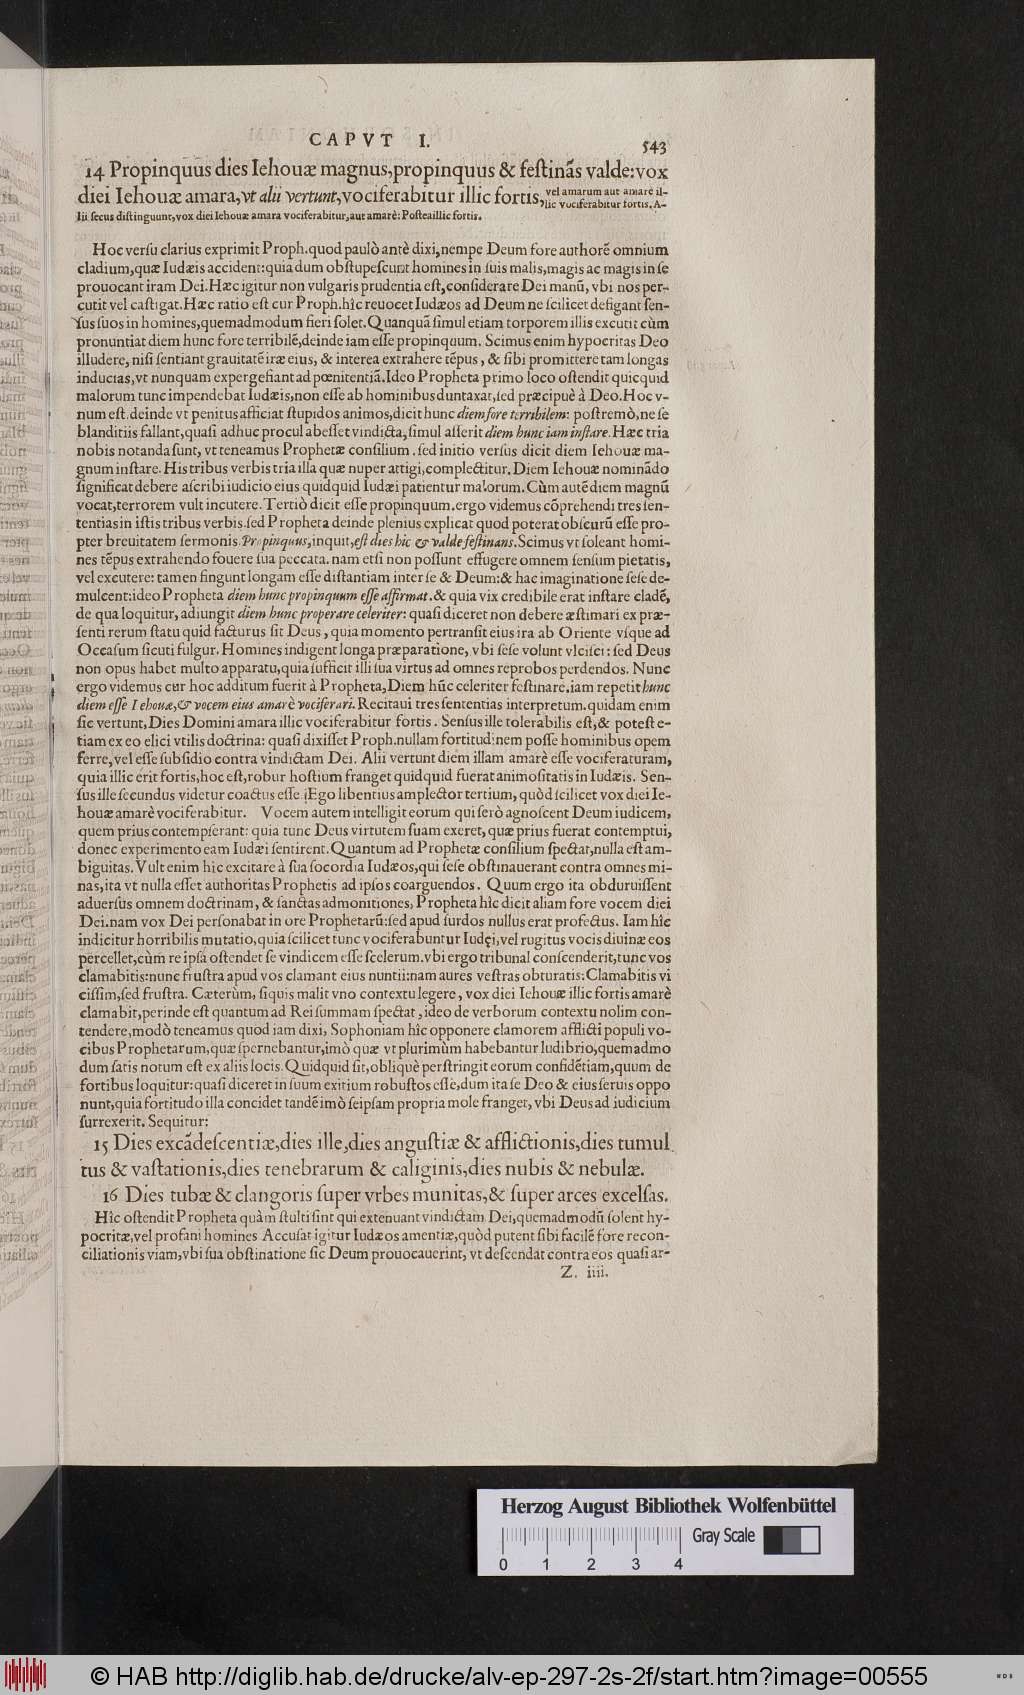 CAPVT I. 543
14 Propinquus dies Iehouæ magnus, propinquus & festinãs valde: vox
diei Iehouæ amara, vt alii vertunt, vociferabitur illic fortis, vel amarum aut amarè il-
lic vociferabitur fortis. A-
lii secus distinguunt, vox diei Iehouæ amara vociferabitur, aut amarè: Postea illic fortis.
Hoc versu clarius exprimit Proph. quod paulò antè dixi, nempe Deum fore authorẽ omnium
cladium, quæ Iudæis accident: quia dum obstupescunt homines in suis malis, magis ac magis in se
prouocant iram Dei. Hæc igitur non vulgaris prudentia est, considerare Dei manũ, vbi nos per-
cutit vel castigat. Hæc ratio est cur Proph. hîc reuocet Iudæos ad Deum ne scilicet defigant sen-
sus suos in homines, quemadmodum fieri solet. Quanquã simul etiam torporem illis excutit cùm
pronuntiat diem hunc fore terribilẽ, deinde iam esse propinquum. Scimus enim hypocritas Deo
illudere, nisi sentiant grauitatẽ iræ eius, & interea extrahere tẽpus, & sibi promittere tam longas
inducias, vt nunquam expergefiant ad pœnitentiã. Ideo Propheta primo loco ostendit quicquid
malorum tunc impendebat Iudæis, non esse ab hominibus duntaxat, sed præcipuè à Deo. Hoc v-
num est. deinde vt penitus afficiat stupidos animos, dicit hunc diem fore terribilem: postremò, ne se
blanditiis fallant, quasi adhuc procul abesset vindicta, simul asserit diem hunc iam instare. Hæc tria
nobis notanda sunt, vt teneamus Prophetæ consilium. sed initio versus dicit diem Iehouæ ma-
gnum instare. His tribus verbis tria illa quæ nuper attigi, complectitur. Diem Iehouæ nominãdo
significat debere ascribi iudicio eius quidquid Iudæi patientur malorum. Cùm autẽ diem magnũ
vocat, terrorem vult incutere. Tertiò dicit esse propinquum. ergo videmus cõprehendi tres sen-
tentias in istis tribus verbis. sed Propheta deinde plenius explicat quod poterat obscurũ esse pro-
pter breuitatem sermonis. Propinquus, inquit, est dies hic & valde festinans. Scimus vt soleant homi-
nes tẽpus extrahendo fouere sua peccata. nam etsi non possunt effugere omnem sensum pietatis,
vel excutere: tamen fingunt longam esse distantiam inter se & Deum: & hac imaginatione sese de-
mulcent: ideo Propheta diem hunc propinquum esse affirmat. & quia vix credibile erat instare cladẽ,
de qua loquitur, adiungit diem hunc properare celeriter: quasi diceret non debere æstimari ex præ-
senti rerum statu quid facturus sit Deus, quia momento pertransit eius ira ab Oriente vsque ad
Occasum sicuti fulgur. Homines indigent longa præparatione, vbi sese volunt vlcisci: sed Deus
non opus habet multo apparatu, quia sufficit illi sua virtus ad omnes reprobos perdendos. Nunc
ergo videmus cur hoc additum fuerit à Propheta, Diem hũc celeriter festinare. iam repetit hunc
diem esse Iehouæ, & vocem eius amarè vociferari. Recitaui tres sententias interpretum. quidam enim
sic vertunt, Dies Domini amara illic vociferabitur fortis. Sensus ille tolerabilis est, & potest e-
tiam ex eo elici vtilis doctrina: quasi dixisset Proph. nullam fortitudinem posse hominibus opem
ferre, vel esse subsidio contra vindictam Dei. Alii vertunt diem illam amarè esse vociferaturam,
quia illic erit fortis, hoc est, robur hostium franget quidquid fuerat animositatis in Iudæis. Sen-
sus ille secundus videtur coactus esse. Ego libentius amplector tertium, quòd scilicet vox diei Ie-
houæ amarè vociferabitur. Vocem autem intelligit eorum qui serò agnoscent Deum iudicem,
quem prius contempserant: quia tunc Deus virtutem suam exeret, quæ prius fuerat contemptui,
donec experimento eam Iudæi sentirent. Quantum ad Prophetæ consilium spectat, nulla est am-
biguitas. Vult enim hîc excitare à sua socordia Iudæos, qui sese obstinauerant contra omnes mi-
nas, ita vt nulla esset authoritas Prophetis ad ipsos coarguendos. Quum ergo ita obduruissent
aduersus omnem doctrinam, & sanctas admonitiones, Propheta hîc dicit aliam fore vocem diei
Dei. nam vox Dei personabat in ore Prophetarũ: sed apud surdos nullus erat profectus. Iam hîc
indicitur horribilis mutatio, quia scilicet tunc vociferabuntur Iudęi, vel rugitus vocis diuinæ eos
percellet, cùm re ipsa ostendet se vindicem esse scelerum. vbi ergo tribunal conscenderit, tunc vos
clamabitis: nunc frustra apud vos clamant eius nuntii: nam aures vestras obturatis: Clamabitis vi
cissim, sed frustra. Cæterùm, siquis malit vno contextu legere, vox diei Iehouæ illic fortis amarè
clamabit, perinde est quantum ad Rei summam spectat, ideo de verborum contextu nolim con-
tendere, modò teneamus quod iam dixi, Sophoniam hîc opponere clamorem afflicti populi vo-
cibus Prophetarum, quæ spernebantur, imò quæ vt plurimùm habebantur ludibrio, quemadmo
dum satis notum est ex aliis locis. Quidquid sit, obliquè perstringit eorum confidẽtiam, quum de
fortibus loquitur: quasi diceret in suum exitium robustos esse, dum ita se Deo & eius seruis oppo
nunt, quia fortitudo illa concidet tandẽ imò seipsam propria mole franget, vbi Deus ad iudicium
surrexerit. Sequitur:
15 Dies excãdescentiæ, dies ille, dies angustiæ & afflictionis, dies tumul
tus & vastationis, dies tenebrarum & caliginis, dies nubis & nebulæ.
16 Dies tubæ & clangoris super vrbes munitas, & super arces excelsas.
Hîc ostendit Propheta quàm stulti sint qui extenuant vindictam Dei, quemadmodũ solent hy-
pocritæ, vel profani homines Accusat igitur Iudæos amentiæ, quòd putent sibi facilẽ fore recon-
ciliationis viam, vbi sua obstinatione sic Deum prouocauerint, vt descendat contra eos quasi ar-
Z. iiii.
Herzog August Bibliothek Wolfenbüttel
0 1 2 3 4 Gray Scale
© HAB http://diglib.hab.de/drucke/alv-ep-297-2s-2f/start.htm?image=00555